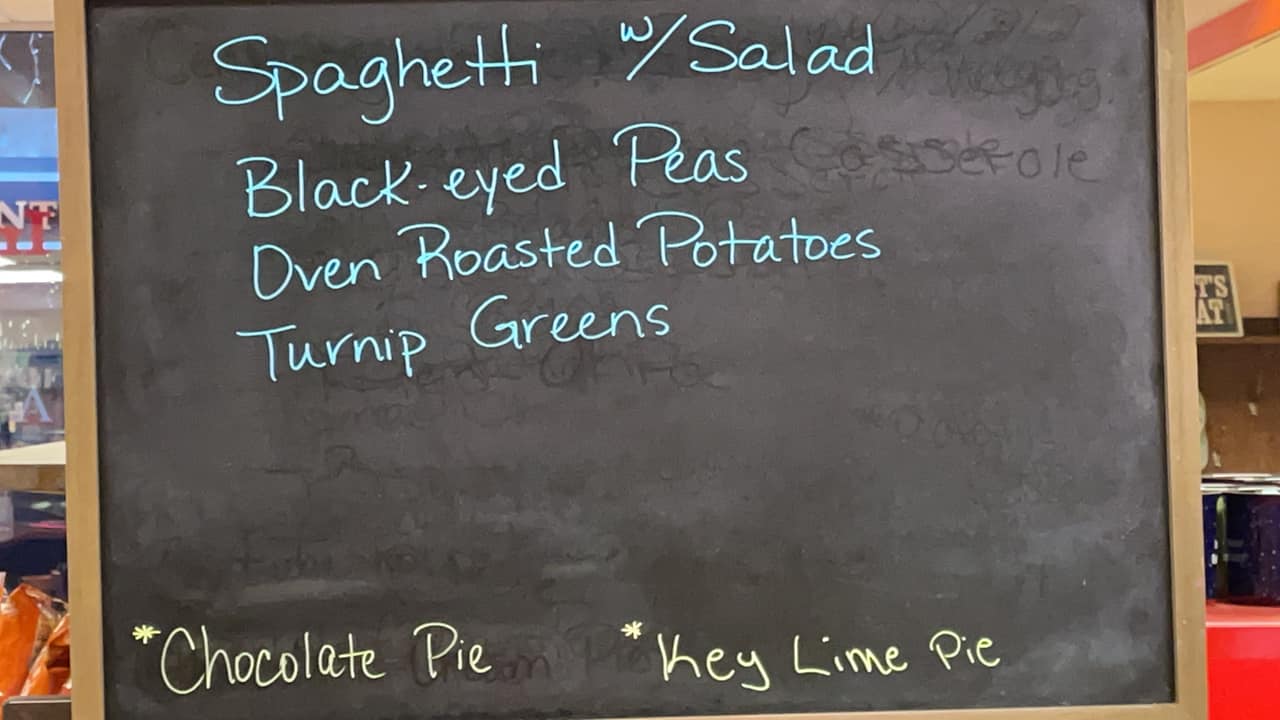 Spaghetti w/Salad
Black-eyed Peas Casserole
Oven Roasted Potatoes
Turnip Greens
*Chocolate Pie *Key Lime Pie
NT
T'S
AT
A